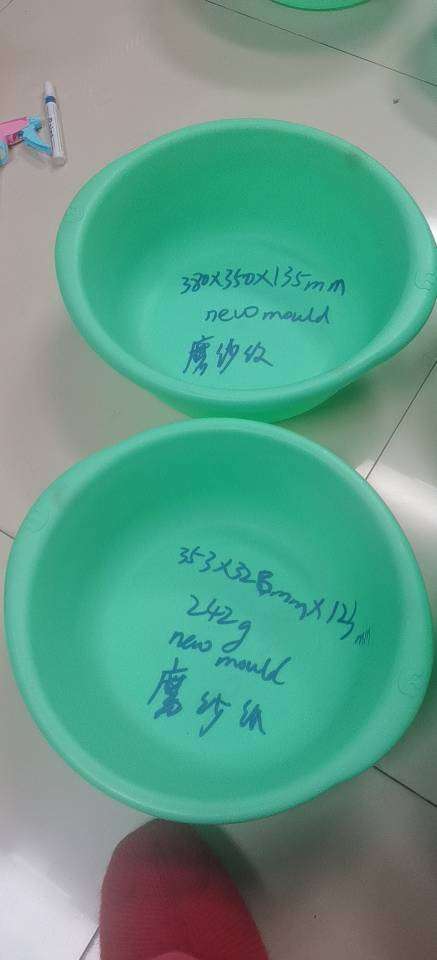 380×350×135mm
new mould
磨纱纹
353×328mm×125mm
242g
new mould
磨纱纹